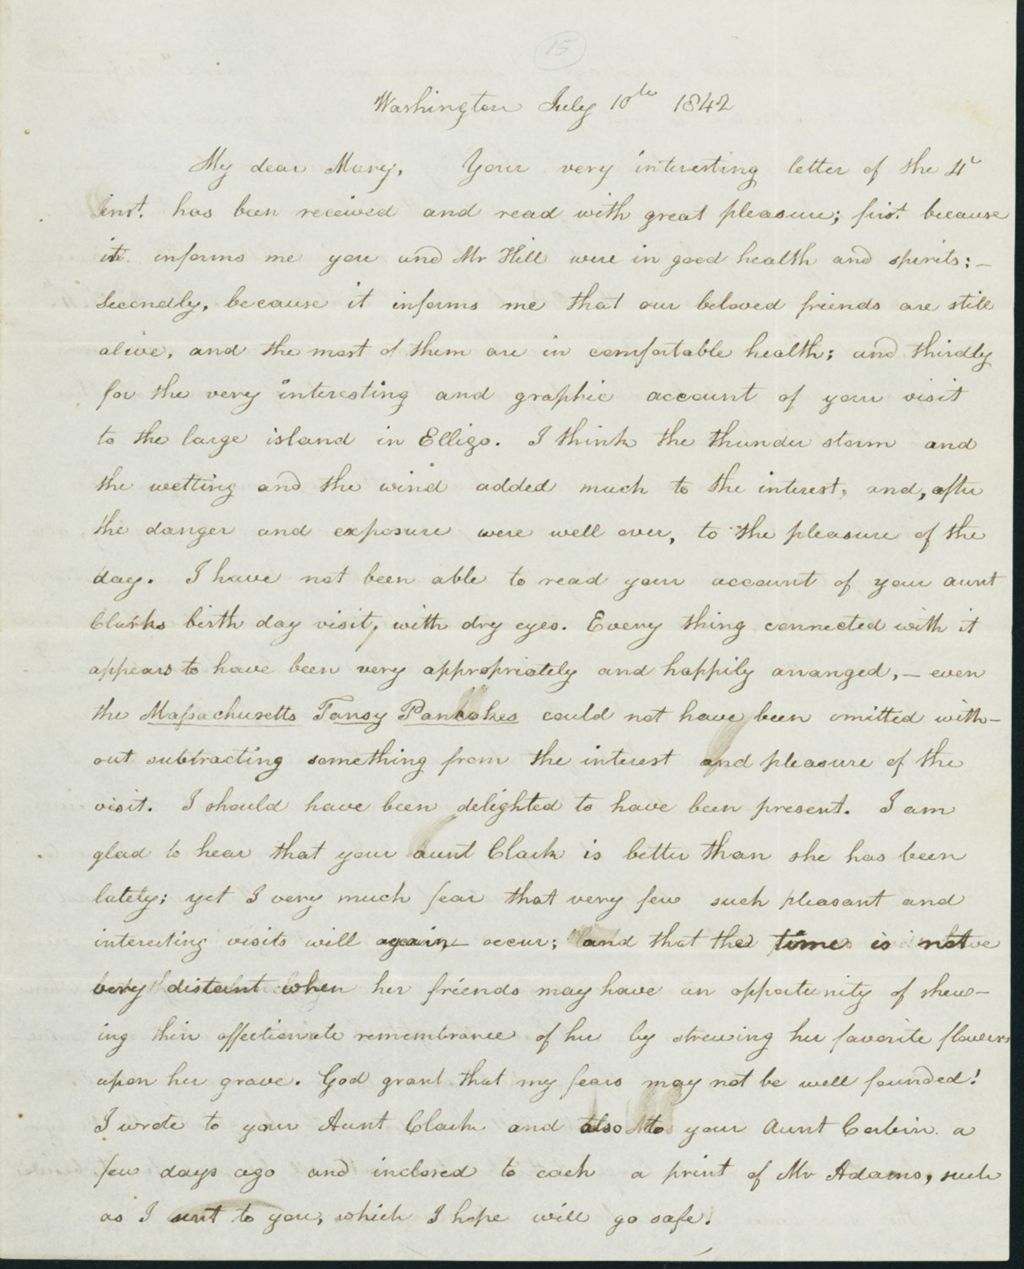 15
Washington July 10th 1842
My dear Mary, Your very interesting letter of the 4t
inst. has been received and read with great pleasure; first because
it informs me you and Mr Hill were in good health and spirits; –
Secondly, because it informs me that our beloved friends are still
alive, and the most of them are in comfortable health; and thirdly
for the very interesting and graphic account of your visit
to the large island in Elligo. I think the thunder storm and
the wetting and the wind added much to the interest, and, after
the danger and exposure were well over, to the pleasure of the
day. I have not been able to read your account of your aunt
Clarks birth day visit, with dry eyes. Every thing connected with it
appears to have been very appropriately and happily arranged, – even
the Massachusetts Tansy Pancakes could not have been omitted with-
out subtracting something from the interest and pleasure of the
visit. I should have been delighted to have been present. I am
glad to hear that your aunt Clark is better than she has been
lately; yet I very much fear that very few such pleasant and
interesting visits will again occur; and that the time is not
very distant when her friends may have an opportunity of shew-
ing their affectionate remembrance of her by strewing her favorite flowers
upon her grave. God grant that my fears may not be well founded!
I wrote to your Aunt Clark and also to your Aunt Corbin a
few days ago and inclosed to each a print of Mr Adams, such
as I sent to you, which I hope will go safe.